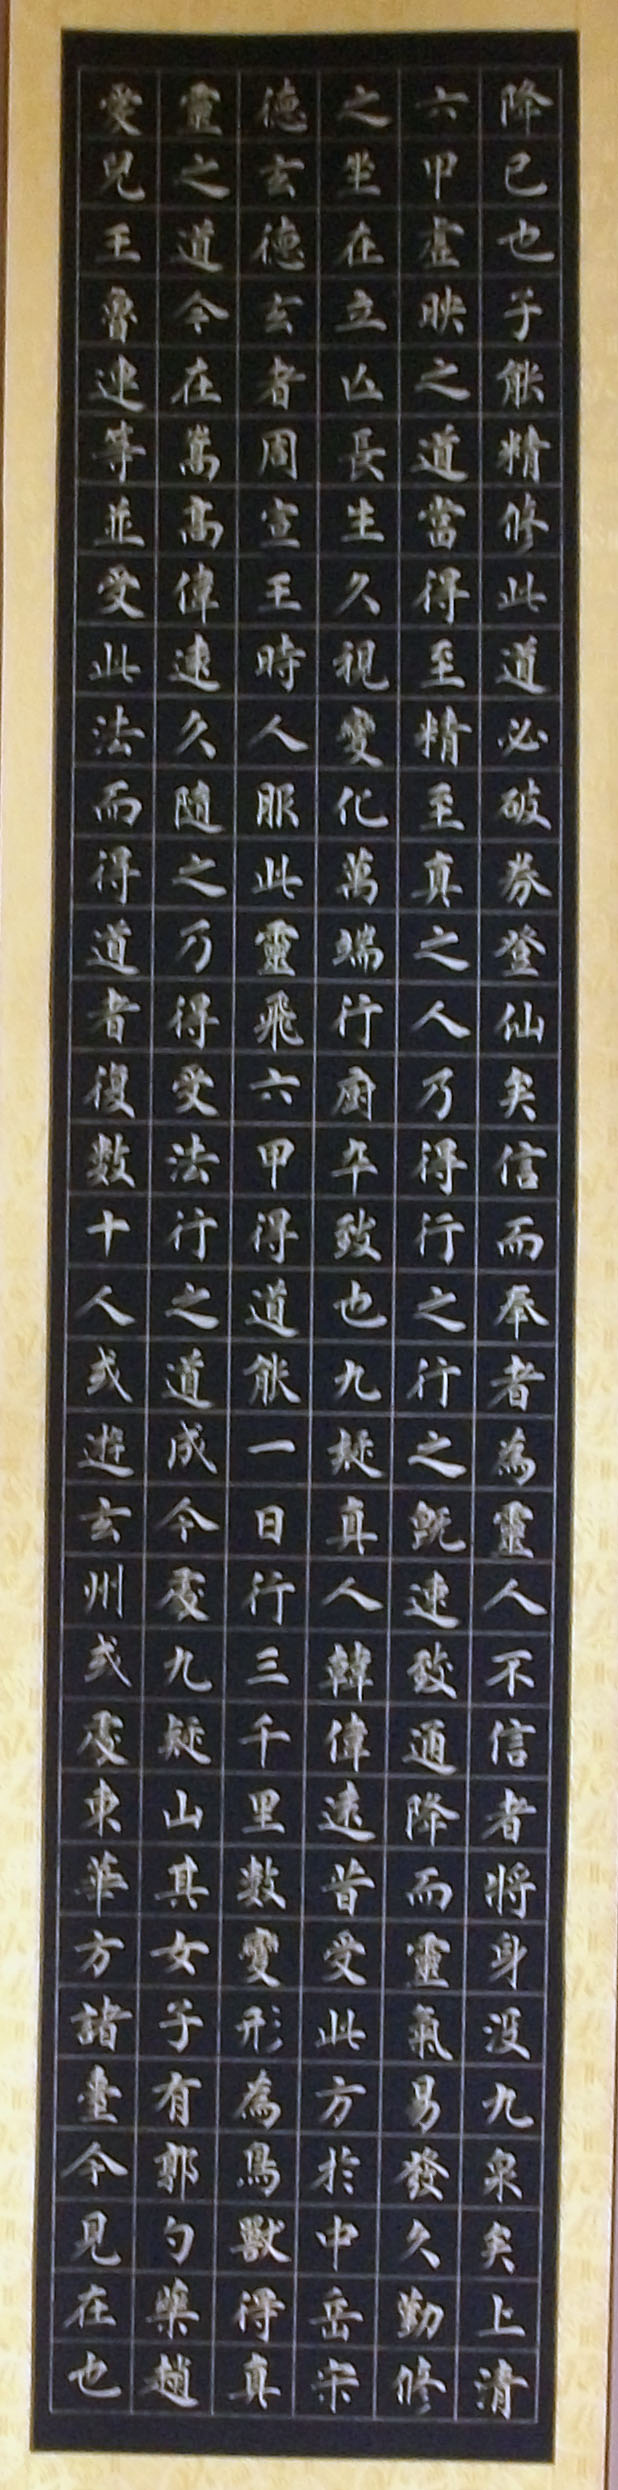 降已也子能精修此道必破券登仙矣信而奉者為靈人不信者將身沒九泉矣上清
六甲虛映之道當得至精至真之人乃得行之行之既速致通降而靈氣易發久勤修
之坐在立亾長生久視變化萬端行廚卒致也九疑真人韓偉遠昔受此方於中岳宋
德玄德玄者周宣王時人服此靈飛六甲得道能一日行三千里數變形為鳥獸得真
靈之道今在嵩高偉遠久隨之乃得受法行之道成今處九疑山其女子有郭勺藥趙
愛兒王魯連等並受此法而得道者復數十人或遊玄州或處東華方諸臺今見在也